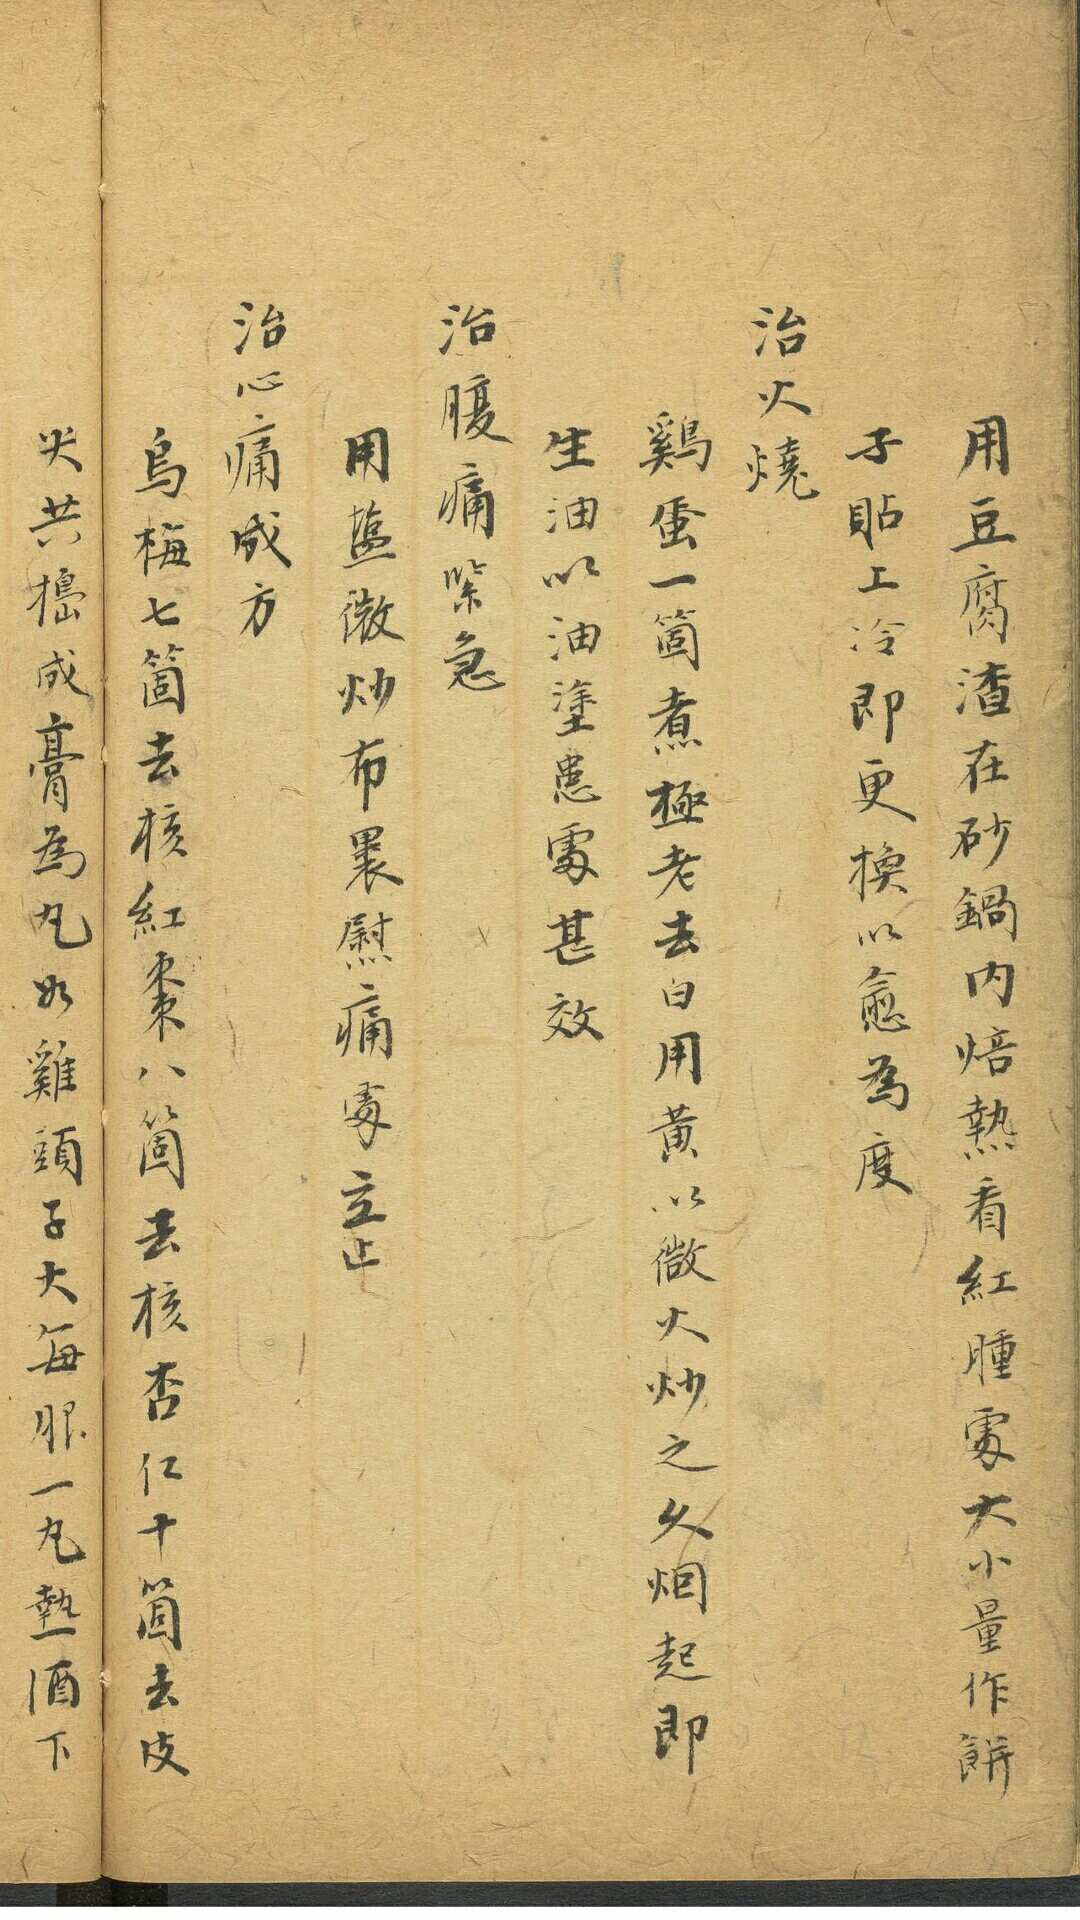 用豆腐渣在砂鍋內焙熱看紅腫處大小量作餅
子貼上冷即更換以愈為度
治火燒
鷄蛋一箇煮極老去白用黃以微火炒之久烟起即
生油以油塗患處甚效
治腹痛緊急
用盐微炒布裹慰痛處立止
治心痛成方
烏梅七箇去核紅棗八箇去核杏仁十箇去皮
尖共搗成膏為丸如雞頭子大每服一丸熱酒下